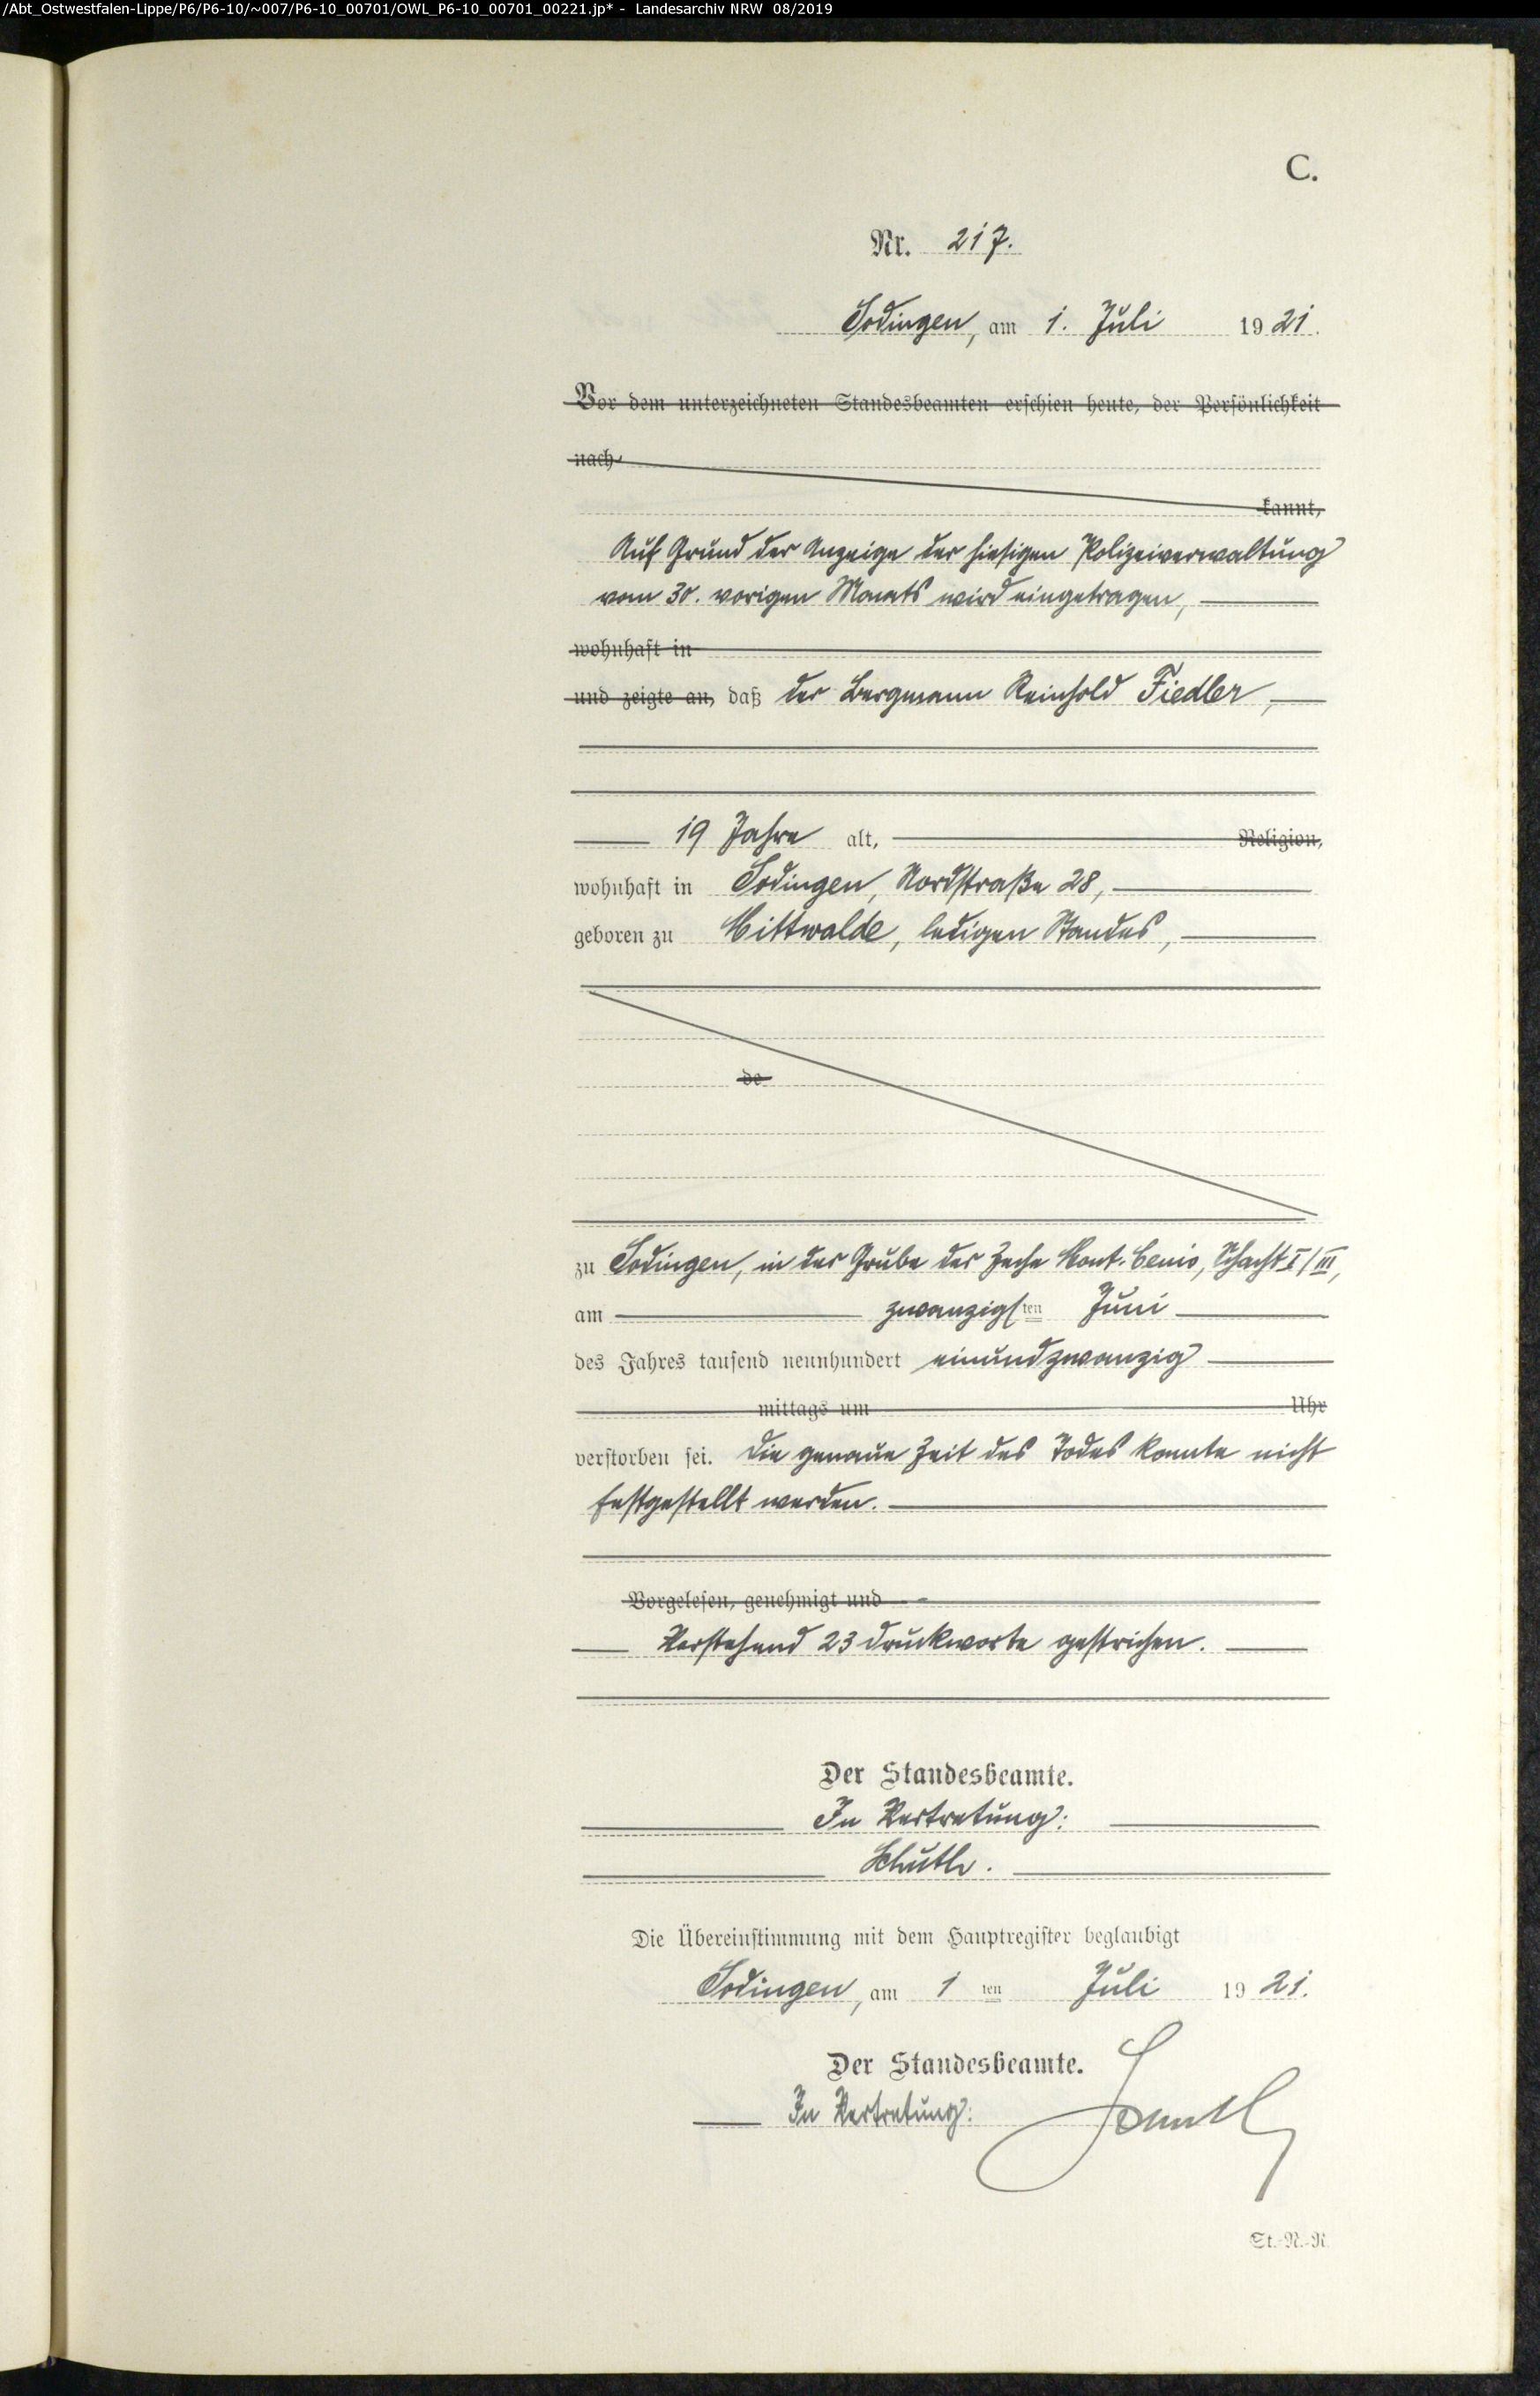 /Abt_Ostwestfalen-Lippe/P6/P6-10/~007/P6-10_00701/OWL_P6-10_00701_00221.jp* - Landesarchiv NRW 08/2019
C.
Nr. 217.
Sodingen, am 1. Juli 1921.
Vor dem unterzeichneten Standesbeamten erschien heute, der Persönlichkeit
nach
kannt,
Auf Grund der Anzeige der hiesigen Polizeiverwaltung
vom 30. vorigen Monats wird eingetragen,
wohnhaft in
und zeigte an, daß der Bergmann Reinhold Fiedler,
19 Jahre alt, Religion,
wohnhaft in Sodingen, Nordstraße 28,
geboren zu Mittwalde, ledigen Standes,
de
zu Sodingen, in der Grube der Zeche Mont-Cenis, Schacht I/III,
am zwanzigsten Juni
des Jahres tausend neunhundert einundzwanzig
mittags um Uhr
verstorben sei. Die genaue Zeit des Todes konnte nicht
festgestellt werden.
Vorgelesen, genehmigt und
Vorstehend 23 Druckworte gestrichen.
Der Standesbeamte.
In Vertretung:
Die Übereinstimmung mit dem Hauptregister beglaubigt
Sodingen, am 1ten Juli 1921.
Der Standesbeamte.
In Vertretung:
St.-N.-R.